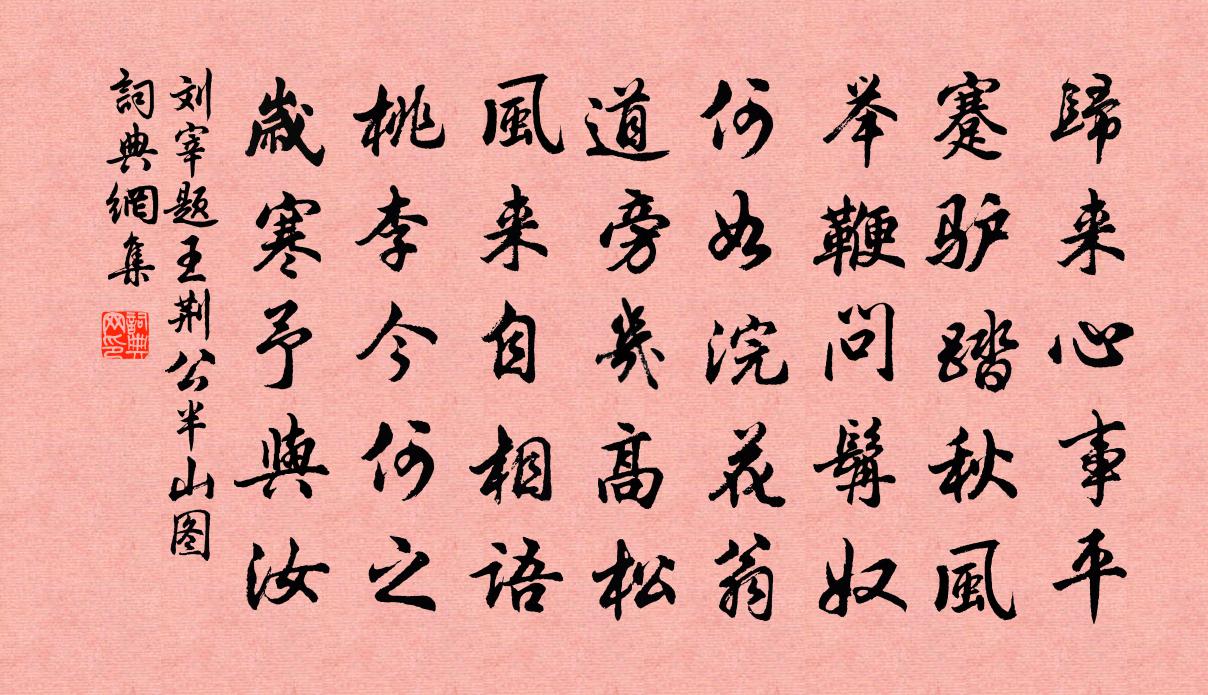 歸来心事平
蹇驴踏秋風
举鞭问髯奴
何如浣花翁
道旁幾高松
風来自相語
桃李今何之
歲寒予與汝
刘宰题王荆公半山图
詞典網集
詞典网印